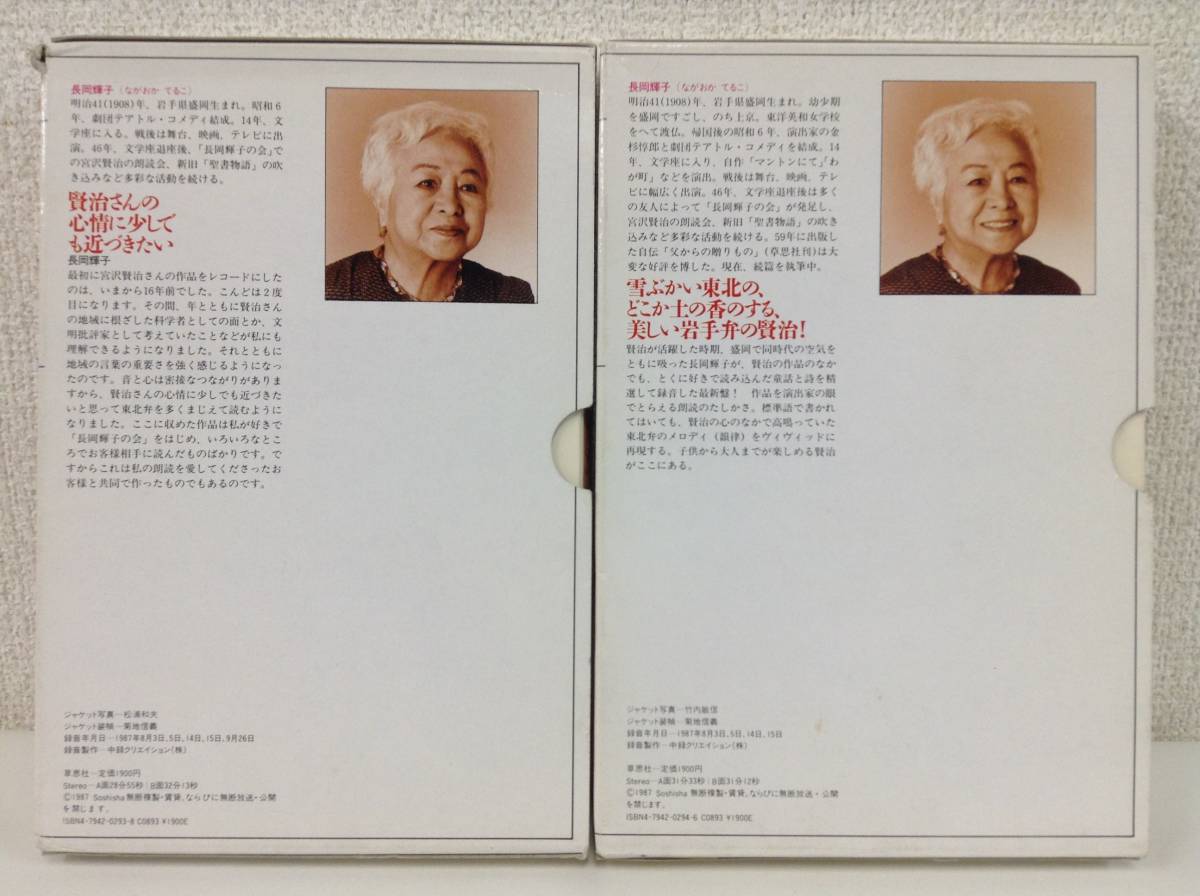 長岡輝子（ながおか てるこ）
明治41(1908)年、岩手県盛岡生まれ。昭和6
年、劇団テアトル・コメディ結成。14年、文
学座に入る。戦後は舞台、映画、テレビに出
演。46年、文学座退座後、「長岡輝子の会」で
の宮沢賢治の朗読会、新旧「聖書物語」の吹
き込みなど多彩な活動を続ける。
賢治さんの
心情に少しで
も近づきたい
長岡輝子
最初に宮沢賢治さんの作品をレコードにした
のは、いまから16年前でした。こんどは2度
目になります。その間、年とともに賢治さん
の地域に根ざした科学者としての面とか、文
明批評家として考えていたことなどが私にも
理解できるようになりました。それとともに
地域の言葉の重要さを強く感じるようになっ
たのです。音と心は密接なつながりがありま
すから、賢治さんの心情に少しでも近づきた
いと思って東北弁を多くまじえて読むように
なりました。ここに収めた作品は私が好きで
「長岡輝子の会」をはじめ、いろいろなとこ
ろでお客様相手に読んだものばかりです。で
すからこれは私の朗読を愛してくださったお
客様と共同で作ったものでもあるのです。
ジャケット写真―松浦和夫
ジャケット装幀―菊地信義
録音年月日―1987年8月3日、5日、14日、15日、9月26日
録音製作―中録クリエイション(株)
草思社―定価1900円
Stereo―A面28分55秒｜B面32分13秒
©1987 Soshisha 無断複製・賃貸、ならびに無断放送・公開
を禁じます。
ISBN4-7942-0293-8 C0893 ¥1900E
長岡輝子（ながおか てるこ）
明治41(1908)年、岩手県盛岡生まれ。幼少期
を盛岡ですごし、のち上京。東洋英和女学校
をへて渡仏。帰国後の昭和6年、演出家の金
杉惇郎と劇団テアトル・コメディを結成。14
年、文学座に入り、自作「マントンにて」「わ
が町」などを演出。戦後は舞台、映画、テレ
ビに幅広く出演。46年、文学座退座後は多く
の友人によって「長岡輝子の会」が発足し、
宮沢賢治の朗読会、新旧「聖書物語」の吹き
込みなど多彩な活動を続ける。59年に出版し
た自伝「父からの贈りもの」(草思社刊)は大
変な好評を博した。現在、続篇を執筆中。
雪ぶかい東北の、
どこか土の香のする、
美しい岩手弁の賢治！
賢治が活躍した時期、盛岡で同時代の空気を
ともに吸った長岡輝子が、賢治の作品のなか
でも、とくに好きで読み込んだ童話と詩を精
選して録音した最新盤！　作品を演出家の眼
でとらえる朗読のたしかさ。標準語で書かれ
てはいても、賢治の心のなかで高鳴っていた
東北弁のメロディ（韻律）をヴィヴィッドに
再現する。子供から大人までが楽しめる賢治
がここにある。
ジャケット写真―竹内敏信
ジャケット装幀―菊地信義
録音年月日―1987年8月3日、5日、14日、15日
録音製作―中録クリエイション(株)
草思社―定価1900円
Stereo―A面31分33秒｜B面31分12秒
©1987 Soshisha 無断複製・賃貸、ならびに無断放送・公開
を禁じます。
ISBN4-7942-0294-6 C0893 ¥1900E